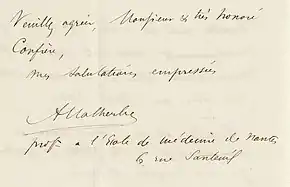 Veuillez agréer, Monsieur & très honoré
Confrère,
mes salutations empressées
A Malherbe
prof. a l'Ecole de médecine de Nantes
6 rue Santeuil